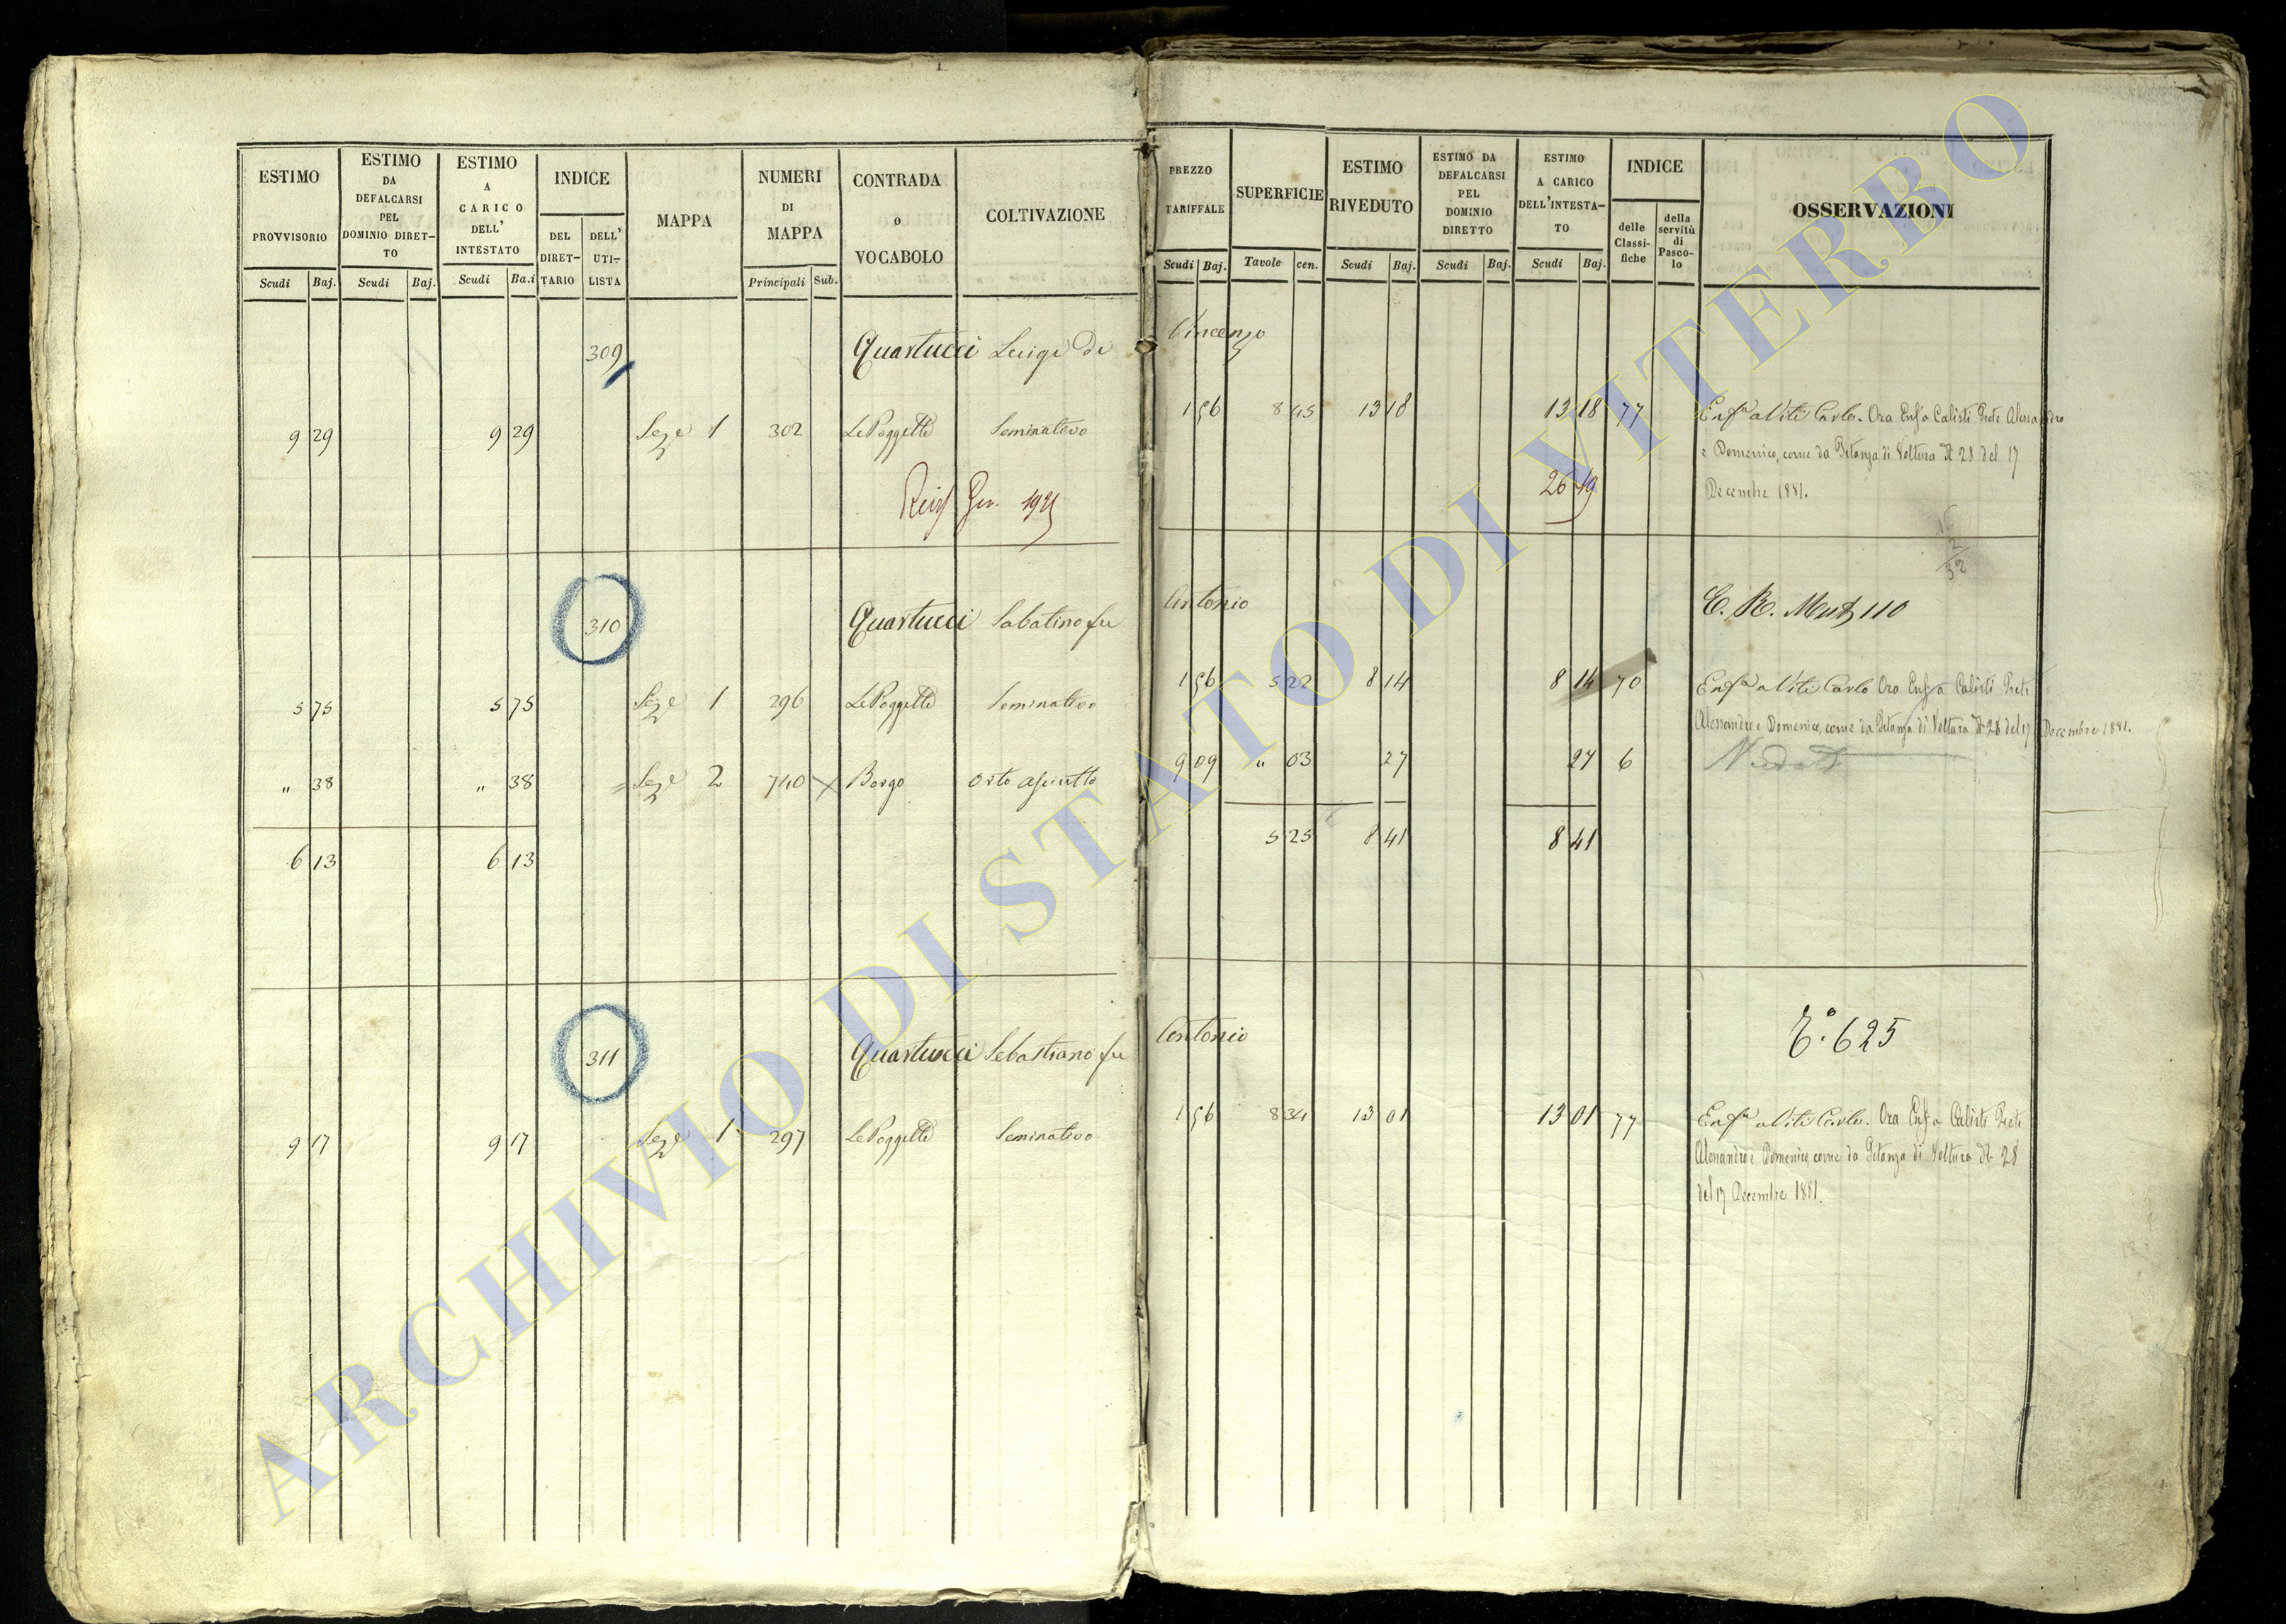 ESTIMO PROVVISORIO Scudi Baj.
ESTIMO DA DEFALCARSI PEL DOMINIO DIRETTO Scudi Baj.
ESTIMO A CARICO DELL' INTESTATO Scudi Ba.i
INDICE DEL DIRETTARIO DELL' UTILISTA
MAPPA
NUMERI DI MAPPA Principali Sub.
CONTRADA O VOCABOLO
COLTIVAZIONE
PREZZO TARIFFALE Scudi Baj.
SUPERFICIE Tavole cen.
ESTIMO RIVEDUTO Scudi Baj.
ESTIMO DA DEFALCARSI PEL DOMINIO DIRETTO Scudi Baj.
ESTIMO A CARICO DELL'INTESTATO Scudi Baj.
INDICE delle Classifiche della servitù di Pascolo
OSSERVAZIONI
309 Quartucci Luigi di Vincenzo
9 29 9 29 Sez.e 1 302 Le Poggette Seminativo 1 56 8 45 13 18 13 18 77 Enf.a a Viti Carlo. Ora Enf.a Calisti Prete Alessandro
e Domenico, come da Istanza di Voltura N. 28 del 17
Decembre 1881.
26 19
16
2
32
310 Quartucci Sabatino fu Antonio C. R. 110
5 75 5 75 Sez.e 1 296 Le Poggette Seminativo 1 56 5 22 8 14 8 14 70 Enf.a a Viti Carlo Ora Enf.a Calisti Prete
Alessandro e Domenico, come da Istanza di Voltura N. 28 del 17 Decembre 1881.
" 38 " 38 Sez.e 2 740 Borgo Orto asciutto 9 09 " 03 27 27 6
6 13 6 13 5 25 8 41 8 41
311 Quartucci Sebastiano fu Antonio 625
9 17 9 17 Sez.e 1 297 Le Poggette Seminativo 1 56 8 34 13 01 13 01 77 Enf.a a Viti Carlo. Ora Enf.a Calisti Prete
Alessandro e Domenico, come da Istanza di Voltura N. 28
del 17 Decembre 1881.
ARCHIVIO DI STATO DI VITERBO